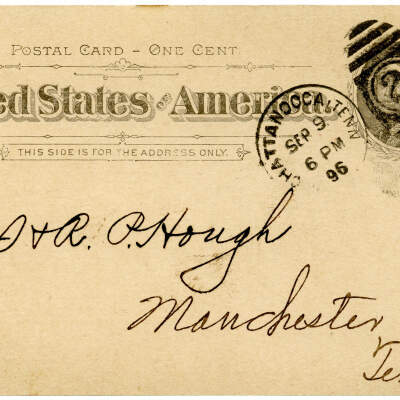 POSTAL CARD – ONE CENT.
ed States OF Americ
THIS SIDE IS FOR THE ADDRESS ONLY.
CHATTANOOGA, TENN
SEP 9
6 PM
96
& R. P. Hough
Manchester
Ten